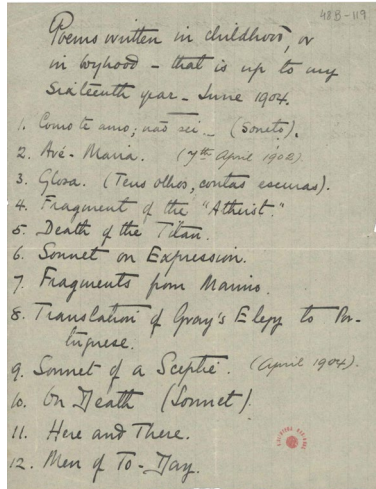 48B-119
Poems written in childhood, or
in boyhood - that is up to my
Sixteenth year - June 1904.
1. Como te amo; não sei - (Soneto).
2. Avé-Maria. (7th April 1902)
3. Glosa. (Teus olhos, contas escuras).
4. Fragment of the "Atheist."
5. Death of the Titan.
6. Sonnet on Expression.
7. Fragments from Marino.
8. Translation of Gray's Elegy to Por-
tuguese.
9. Sonnet of a Sceptic. (April 1904).
10. On Death (Sonnet).
11. Here and There.
12. Men of To-Day.